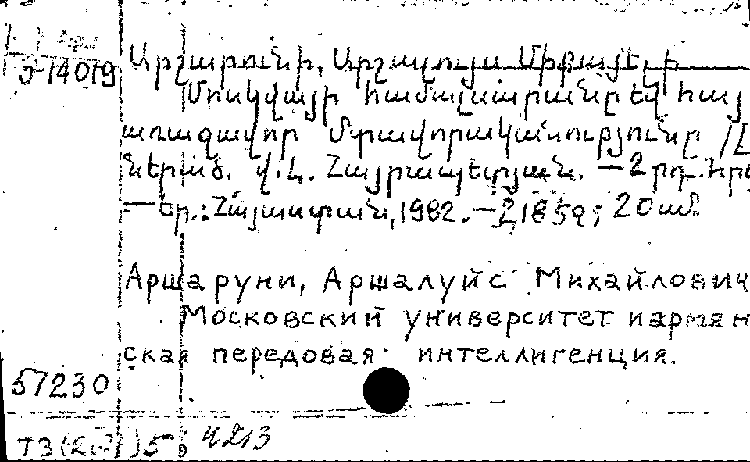 Э-14019
Արշարունի, Արշալույս Միքայելի
Մոսկվայի համալսարանը եվ հայ
առաջավոր մտավորականությունը /
Ներած. Վ.Ն. Հայրապետյան. — 2 րդ. հրա
— եր.: Հայաստան, 1982. — 185 էջ; 20 սմ.
Аршаруни, Аршалуйс Михайлович
Московский университет и армян
ская передовая интеллигенция.
57230
4213